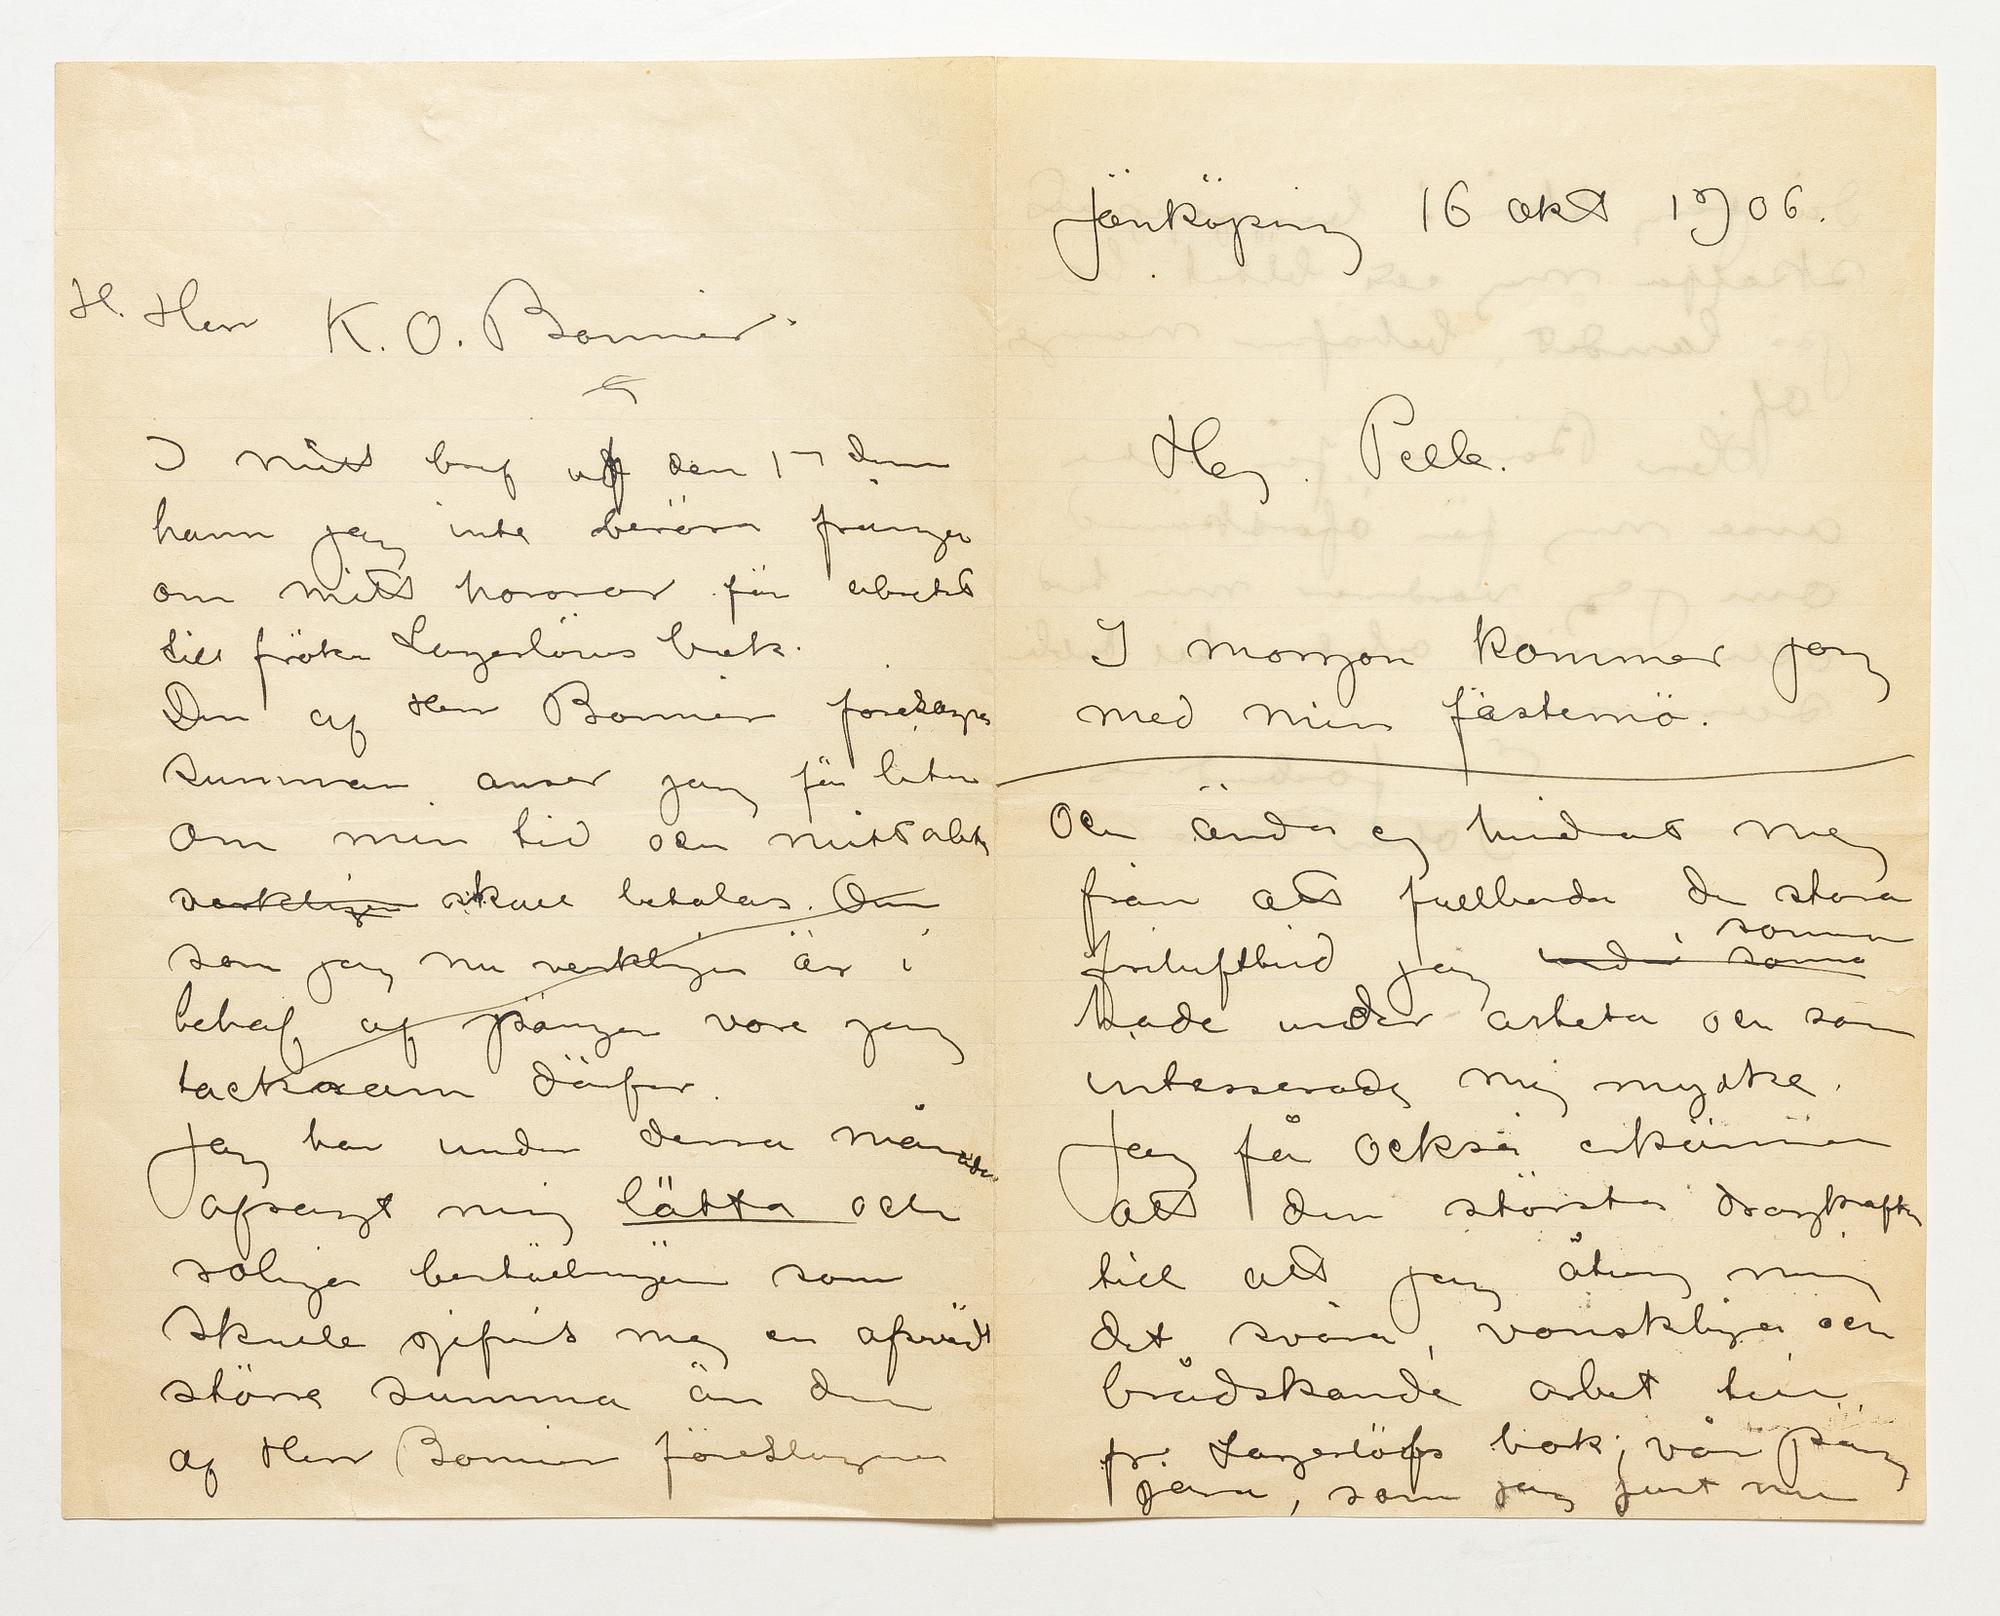 H. Herr K. O. Bonnier
I mitt bref af den 17 dennes
hann jag inte beröra frågan
om mitt honorar för arbetet
till fröken Lagerlöfs bok.
Den af Herr Bonnier föreslagna
summan anser jag för liten
om min tid och mitt arbete
verkligen skall betalas. Om
som jag nu verkligen är i
behof af pängar vore jag
tacksam därför.
Jag har under dessa månader
afsagt mig lätta och
roliga beställningar som
skulle gifvit mig en afsevärdt
större summa än den
af Herr Bonnier föreslagna
Jönköping 16 okt 1906.
Hej Pelle.
I morgon kommer jag
med min fästemö.
och ändå ej hindrat mig
från att fullborda de stora
somras
friluftbild jag
hade under arbete och som
intresserade mig mycke.
Jag får också erkänna
att den största dragkraften
till att jag åtog mig
det svåra, vanskliga och
brådskande arbet till
fr. Lagerlöfs bok, var päng
garna, som jag just nu